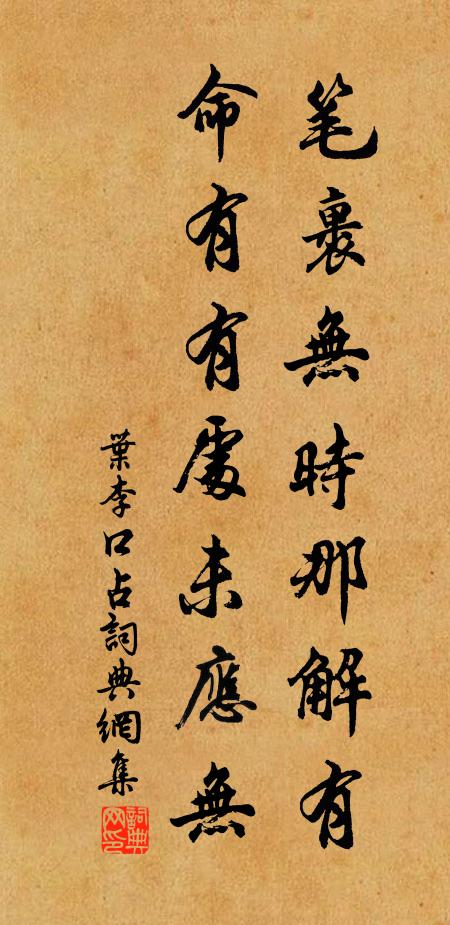 笔裏無時那解有
命有有處未應無
葉李口占詞典網集
詞典网印